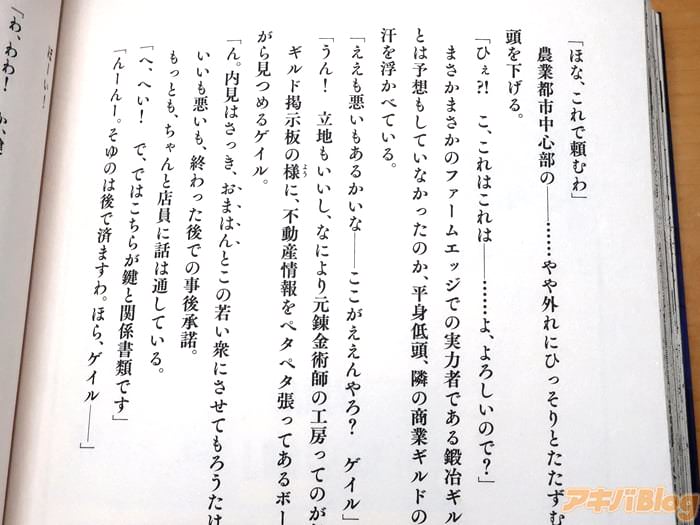 「ほな、これで頼むわ」
農業都市中心部の――………やや外れにひっそりとたたずむ
頭を下げる。
「ひぇ?! こ、これはこれは――………よ、よろしいので?」
まさかまさかのファームエッジでの実力者である鍛冶ギル
とは予想もしていなかったのか、平身低頭、隣の商業ギルドの
汗を浮かべている。
「ええも悪いもあるかいな――ここがええんやろ? ゲイル」
「うん! 立地もいいし、なにより元錬金術師の工房ってのが
ギルド掲示板の様に、不動産情報をペタペタ張ってあるボー
よう
がら見つめるゲイル。
「ん。内見はさっき、おまはんとこの若い衆にさせてもろうたけ
いいも悪いも、終わった後での事後承諾。
もっとも、ちゃんと店員に話は通している。
「へ、へい! で、ではこちらが鍵と関係書類です」
「んーんー。そゆのは後で済ますわ。ほら、ゲイル――」
「わ、わわ!
アキバBlog